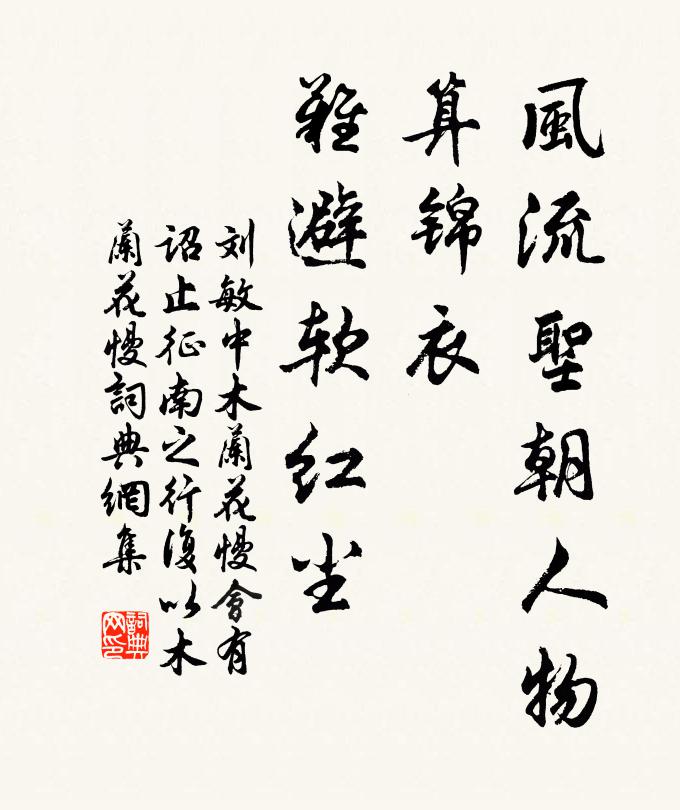 風流聖朝人物
算锦衣
難避软红尘
刘敏中木蘭花慢會有
詔止征南之行復以木
蘭花慢詞典網集
詞典
网印